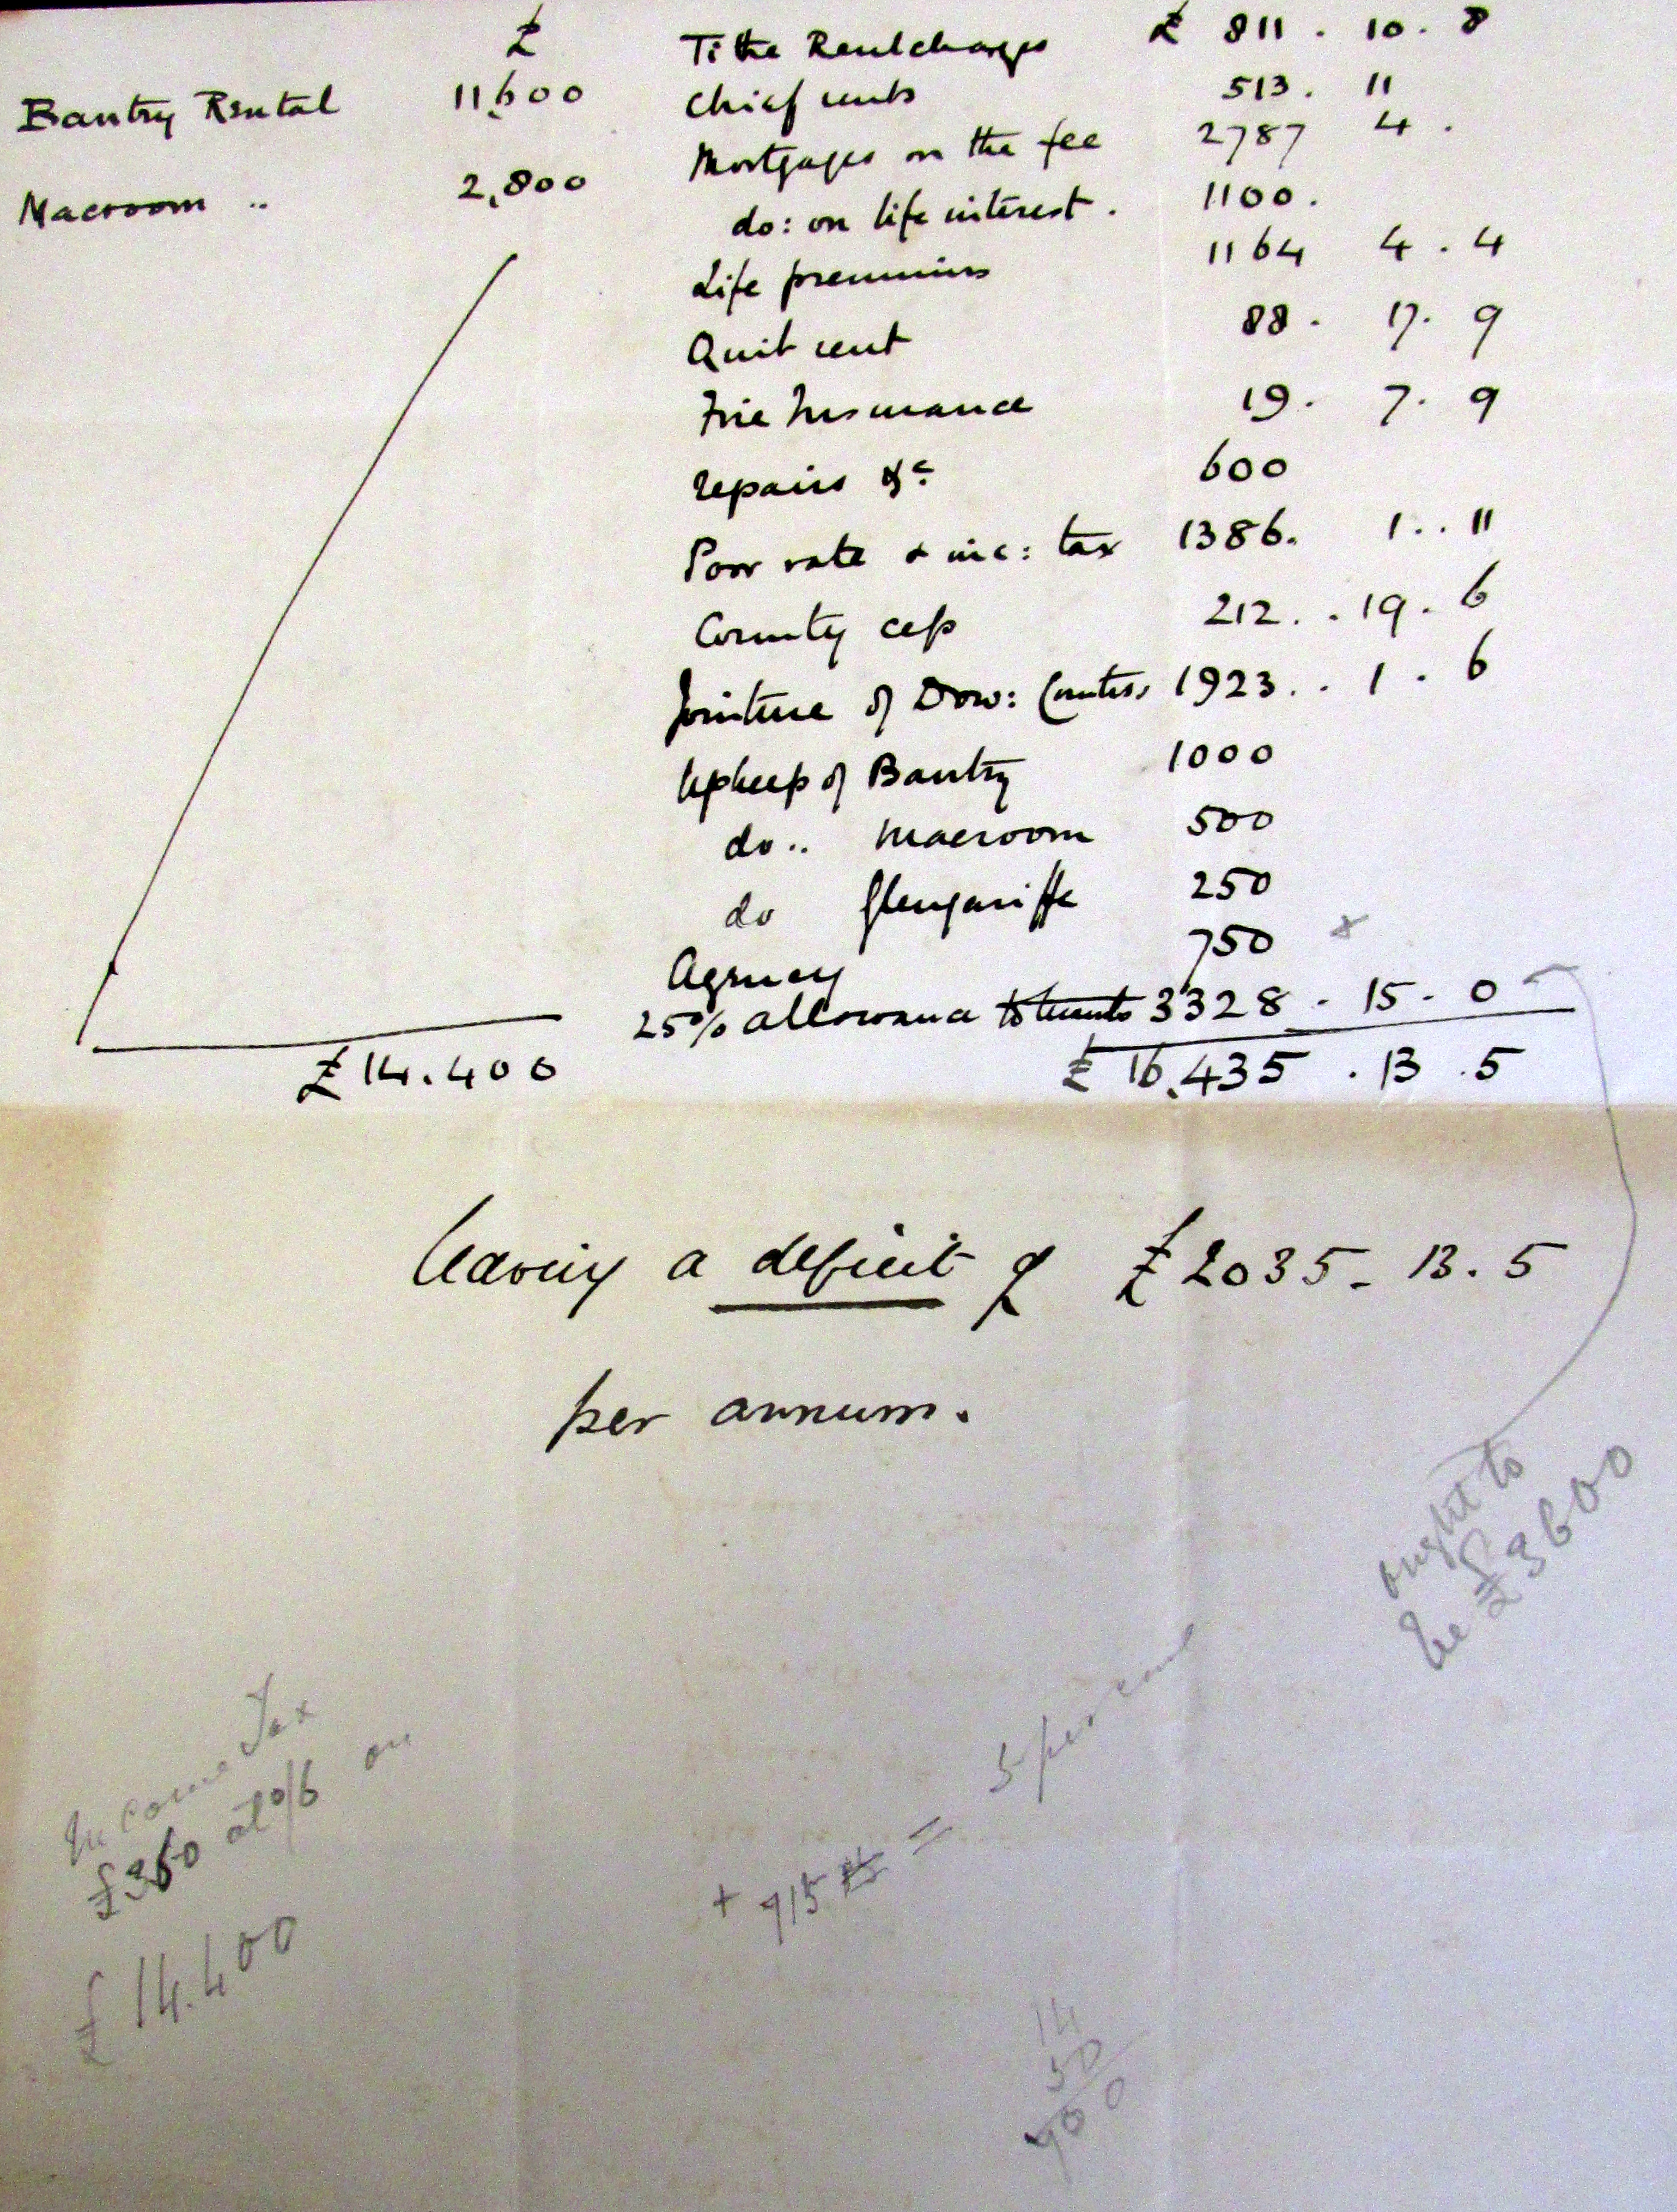 £ Tithe Rentcharges £ 811 . 10 . 8
Bantry Rental 11,600 Chief rents 513 . 11
Mortgages on the fee 2787 4 .
Macroom .. 2,800 do: on life interest . 1100 .
Life premiums 1164 4 . 4
Quit rent 88 . 17 . 9
Fire Insurance 19 . 7 . 9
repairs &c. 600
Poor rate & inc: tax 1386. 1 .. 11
County cess 212 . . 19 . 6
Jointure of Dow: Countess 1923 . . 1 . 6
Upkeep of Bantry 1000
do .. Macroom 500
do Glengariffe 250
Agency 750 x
25% allowance to tenants 3328 . 15 . 0
£14.400 £ 16,435 . 13 . 5
leaving a deficit of £2035 - 13 . 5
per annum.
ought to
be £3600
Income Tax
£360 at 0/6 on
£14.400
+ 715 = 5 per cent
14
50
700